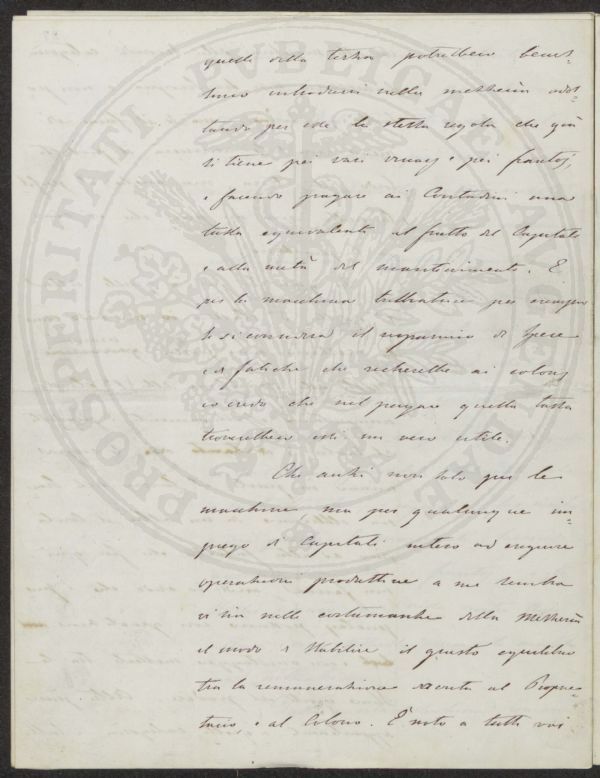 quelle della terra potrebbero benis-
simo introdursi nella mezzeria adot-
tando per esse la stessa regola che già
si tiene pei vari vinari e pei frantoj,
e facendo pagare ai Contadini una
tassa equivalente al frutto del Capitale
e alla metà del mantenimento. E
per la macchina trebbiatrice per esempio
se si considera il risparmio di spese
e di fatiche che recherebbe ai coloni
io credo che nel pagare quella tassa
troverebbero essi un vero utile.
Che anzi non solo per le
macchine ma per qualunque im-
piego di Capitali inteso ad eseguire
operazioni produttive a me sembra
vi sia nelle costumanze della Mezzeria
il modo di stabilire il giusto equilibrio
tra la remunerazione dovuta al Proprie-
tario e al Colono. È noto a tutti voi
PROSPERITATI PUBLICAE AUGENDAE